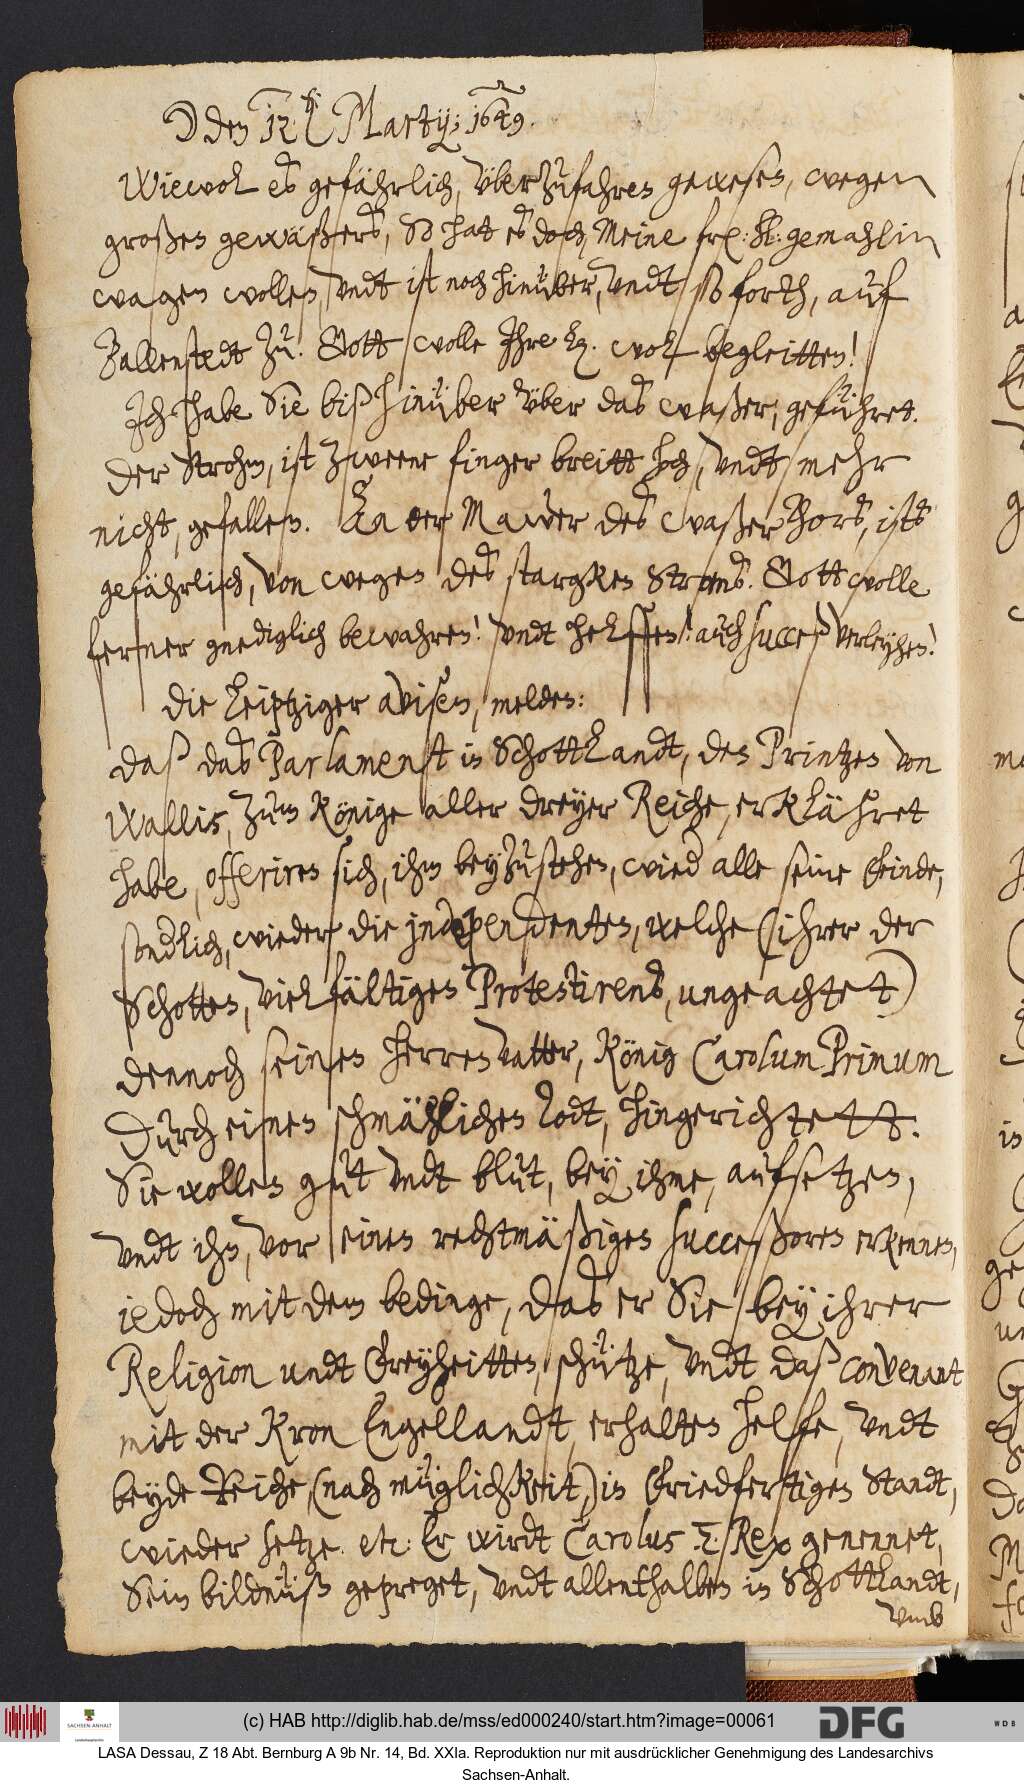 ☽ den 12.t: Martij; 1649.
Wiewol es gefährlich, vberzufahren gewesen, wegen
großen gewäßers, So hat es doch, Meine frl: hl: gemahlin
wagen wollen, vndt ist noch hinüber, vndt so forth, auf
Ballenstedt zu. Gott wolle Ihre L. wol begleitten!
Ich habe Sie biß hinüber vber das waßer, geführet.
Der Strohm, ist zweene finger breitt hoch, vndt mehr
nicht, gefallen. An der Mawer des waßerthors, ists
gefährlich, von wegen des stargken Stroms. Gott wolle
ferner gnediglich bewahren! vndt helffen! auch succeß verleyhen!
Die Leiptziger avisen, melden:
Daß das Parlament in Schottlandt, den Printzen von
Wallis, zum Könige aller dreyer Reiche, erklähret
habe, offeriren sich, ihm beyzustehen, wied alle seine feinde,
sondlich, wieder die jndependenten, welche (ihrer der
Schotten, vielfältigen Protestirens, ungeachtet)
dennoch seinen Herrenvatter, König Carolum Primum
Durch einen schmählichen Todt, hingerichtett.
Sie wollen gut vndt blut, bey ihme, aufsetzen,
vndt ihn, vor einen rechtmäßigen successoren erkennen,
iedoch mit dem bedinge, das er Sie bey ihrer
Religion undt freyheitten, schütze, vndt daß convenant
mit der Kron Engellandt, erhalten helfe, vndt
beyde Reiche, (nach müglichkeit,) in friedfertigen Standt,
wieder setze. etc: Er wirdt Carolus I. Rex genennet,
Sein bildnüß gepreget, vndt allenthalben in Schottlandt,
vmb
(c) HAB http://diglib.hab.de/mss/ed000240/start.htm?image=00061
SACHSEN-ANHALT
DFG
WDB
LASA Dessau, Z 18 Abt. Bernburg A 9b Nr. 14, Bd. XXIa. Reproduktion nur mit ausdrücklicher Genehmigung des Landesarchivs
Sachsen-Anhalt.